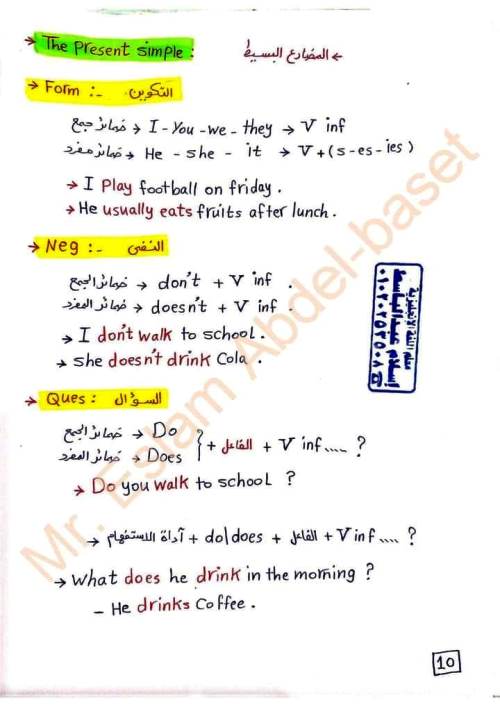 → The Present simple : ← المضارع البسيط
→ Form :- التكوين
ضمائر جمع → I - You - we - they → V inf
ضمائر مفرد → He - she - it → V + (s - es - ies)
→ I Play football on friday .
→ He usually eats fruits after lunch .
→ Neg :- النفى
ضمائر الجمع → don't + V inf .
ضمائر المفرد → doesn't + V inf .
→ I don't walk to school .
→ she doesn't drink Cola .
→ Ques : السؤال
ضمائر الجمع → Do
ضمائر المفرد → Does
} + الفاعل + V inf .... ?
→ Do you walk to school ?
→ أداة الاستفهام + do\does + الفاعل + V inf .... ?
→ What does he drink in the morning ?
- He drinks Coffee .
10
Mr. Eslam Abdel-baset
معلم اللغة الإنجليزية
إسلام عبدالباسط